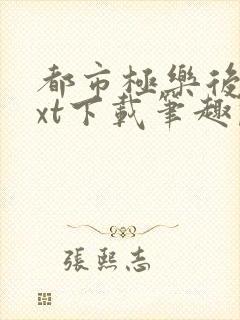 都市極樂後
xt下載筆趣
張熙志